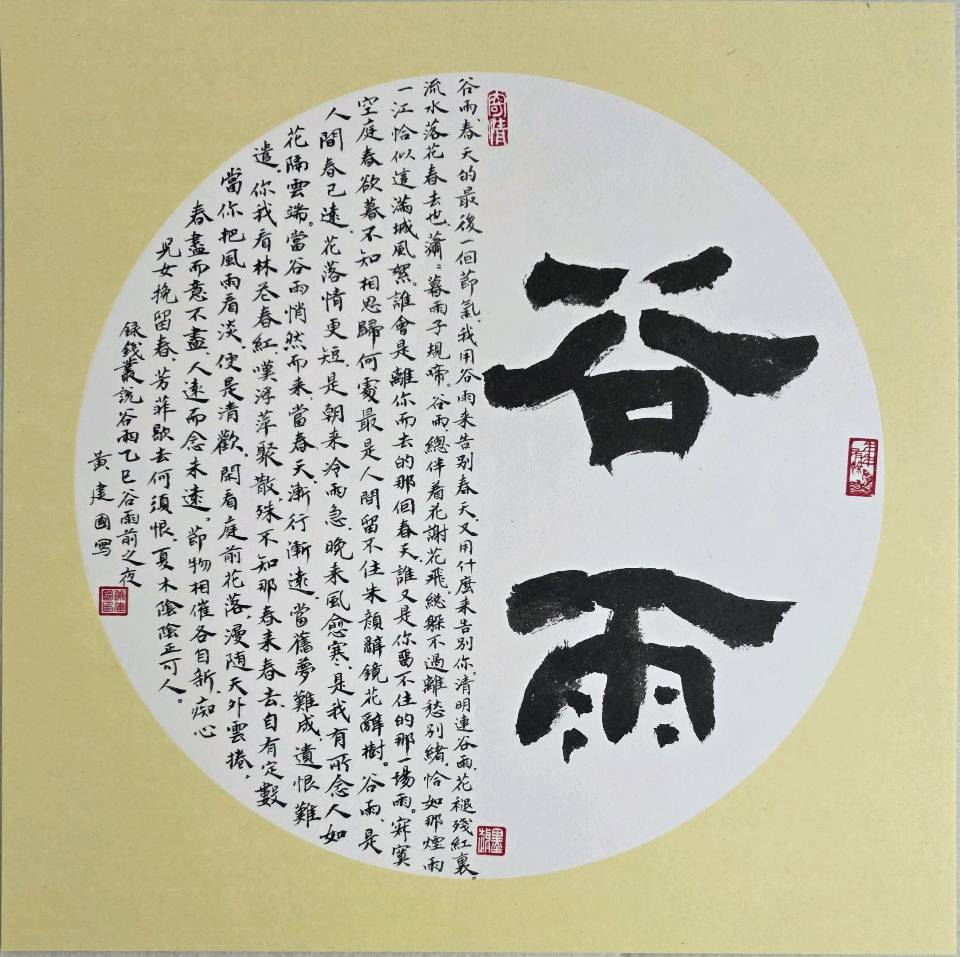 谷雨
谷雨、春天的最後一個節氣、我用谷雨来告别春天、又用什麼来告别你。清明連谷雨、花褪殘紅裏。
流水落花春去也、瀟〻暮雨子規啼。谷雨總伴着花謝花飛、総躲不過離愁别緒、恰如那煙雨
一江、恰似這滿城風絮。誰會是離你而去的那個春天、誰又是你留不住的那一場雨。寂寞
空庭春欲暮、不知相思歸何處、最是人間留不住、朱顏辭鏡花辭樹。谷雨、是
人間春已遠、花落情更短、是朝来冷雨急、晚来風愈寒、是我有所念人、如
花隔雲端。當谷雨悄然而来、當春天漸行漸遠、當舊夢難成、遺恨難
遣、你我看林花春紅、嘆浮萍聚散、殊不知那春来春去、自有定數
當你把風雨看淡、便是清歡、閑看庭前花落、漫随天外雲捲、
春盡而意不盡、人遠而念未遠。節物相催各自新、痴心
兒女挽留春、芳菲歇去何須恨、夏木陰陰正可人。
録錢叢説谷雨乙巳谷雨前之夜
黄建國寫
寄情